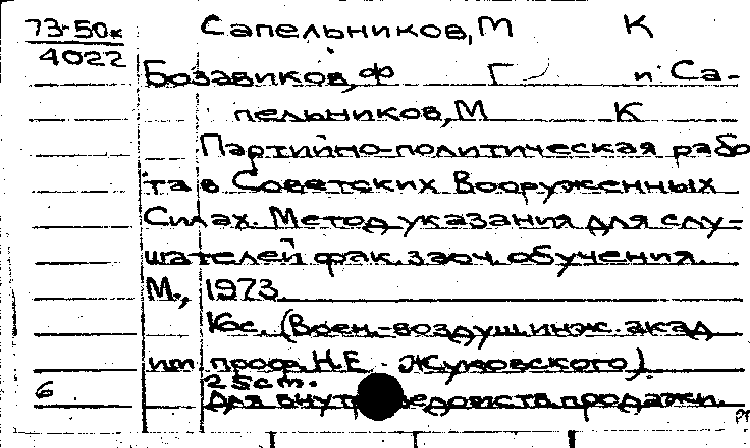 73-50к
4022
Сапельников, М К
Бозавиков, Ф Г и Са-
пельников, М К
Партийно-политическая рабо
та в Советских Вооруженных
Силах. Метод указания для слу-
шателей фак. заоч. обучения.
М., 1973.
16с. (Воен.-воздуш инж. акад
им проф. Н.Е Жуковского)
25см.
6
Для внут ведомств. продажи.